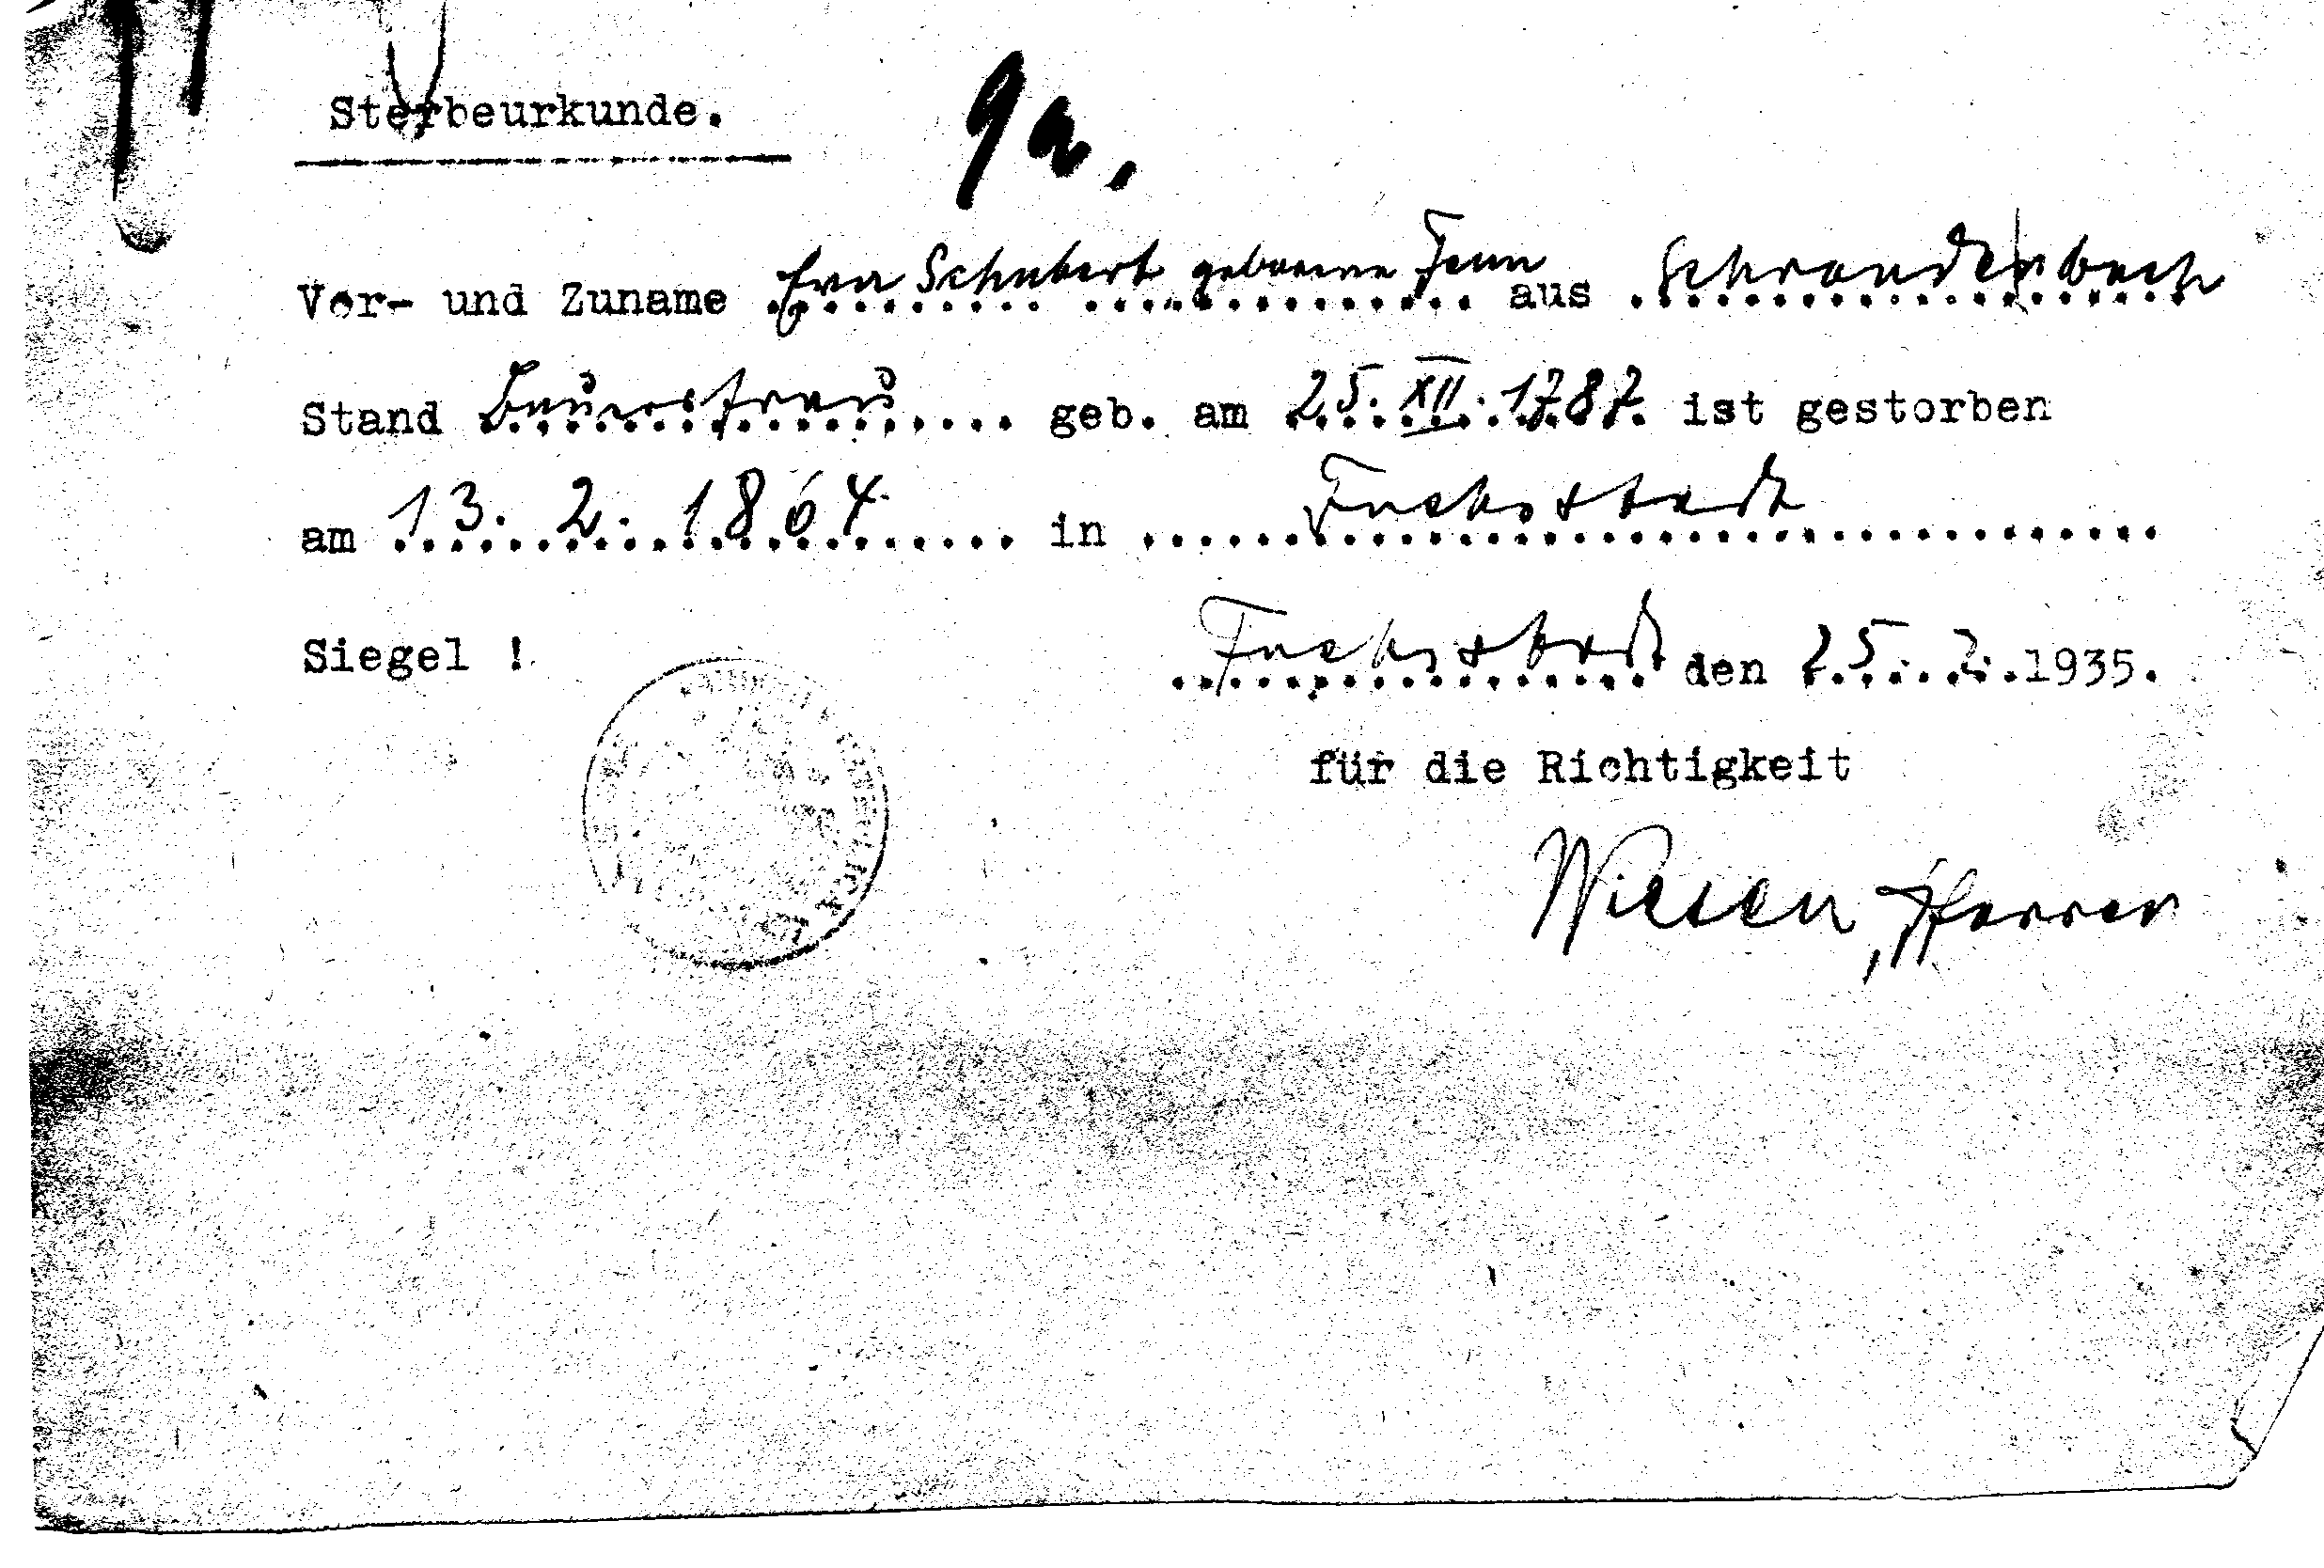 Sterbeurkunde. 9a.
Vor- und Zuname Eva Schubert geborene Fenn aus Schraudenbach
Stand Bauersfrau geb. am 25. XII. 1787 ist gestorben
am 13. 2. 1864 in Fuchsstadt
Siegel ! Fuchsstadt den 25. 2. 1935.
für die Richtigkeit
Pfarrer